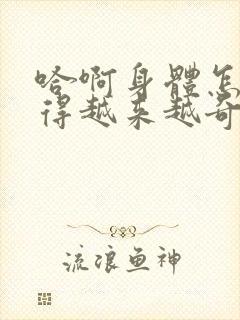 哈啊身體怎
得越来越奇
流浪鱼神